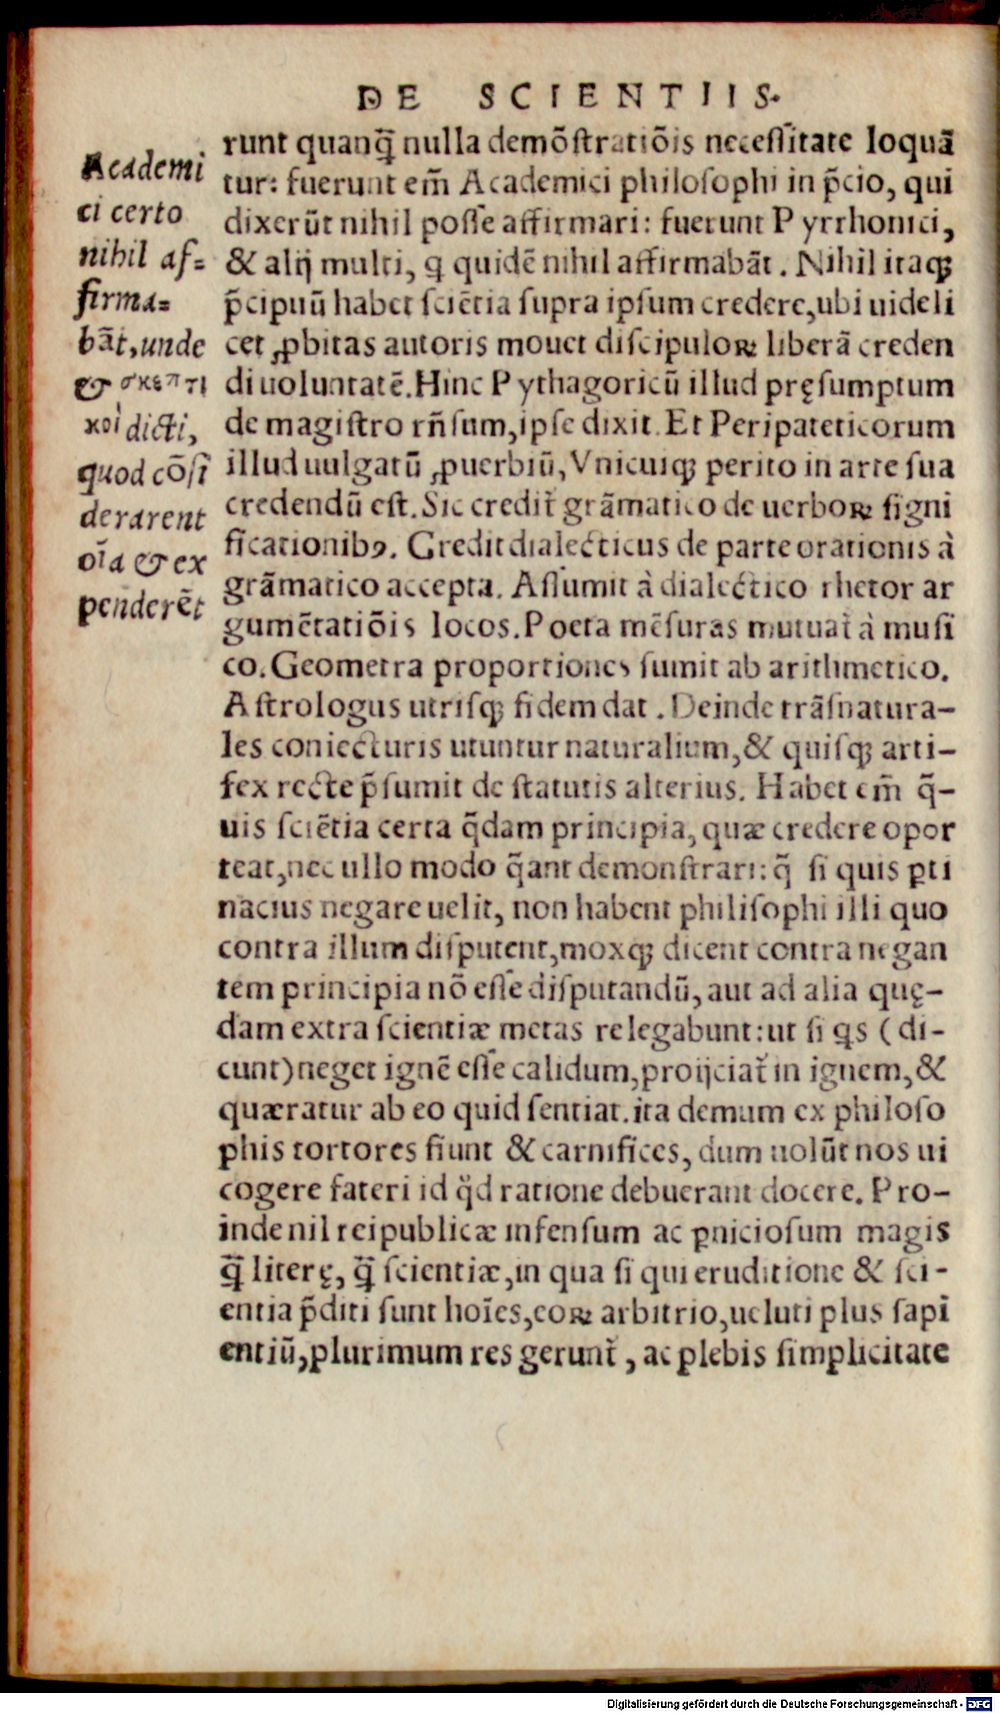 DE SCIENTIIS.
Academi
ci certo
nihil af=
firma=
bāt, unde
& σκεπτι
κοὶ dicti,
quod cōsi
derarent
oīa & ex
penderēt
runt quanq̄ nulla demōstratiōis necessitate loquā
tur: fuerunt em̄ Academici philosophi in p̄cio, qui
dixerūt nihil posse affirmari: fuerunt Pyrrhonici,
& alij multi, ꝗ quidē nihil affirmabāt. Nihil itaqꝫ
p̄cipuū habet sciētia supra ipsum credere, ubi uideli
cet ꝓbitas autoris mouet discipuloꝝ liberā creden
di uoluntatē. Hinc Pythagoricū illud pręsumptum
de magistro rn̄sum, ipse dixit. Et Peripateticorum
illud uulgatū ꝓuerbiū, Vnicuiqꝫ perito in arte sua
credendū est. Sic credit᷑ grāmatico de uerboꝝ signi
ficationibꝰ. Credit dialecticus de parte orationis à
grāmatico accepta. Assumit à dialectico rhetor ar
gumētatiōis locos. Poeta mēsuras mutuat᷑ à musi
co. Geometra proportiones sumit ab arithmetico.
Astrologus utrisqꝫ fidem dat. Deinde trāsnatura-
les coniecturis utuntur naturalium, & quisqꝫ arti-
fex recte p̄sumit de statutis alterius. Habet em̄ q̄-
uis sciētia certa q̄dam principia, quæ credere opor
teat, nec ullo modo q̄ant demonstrari: q̄ si quis ꝑti
nacius negare uelit, non habent philisophi illi quo
contra illum disputent, moxqꝫ dicent contra negan
tem principia nō esse disputandū, aut ad alia quę-
dam extra scientiæ metas relegabunt: ut si ꝗs (di-
cunt) neget ignē esse calidum, proijciat᷑ in ignem, &
quæratur ab eo quid sentiat. ita demum ex philoso
phis tortores fiunt & carnifices, dum uolūt nos ui
cogere fateri id q̄d ratione debuerant docere. Pro-
inde nil reipublicæ infensum ac ꝑniciosum magis
q̄ literę, q̄ scientiæ, in qua si qui eruditione & sci-
entia p̄diti sunt hoīes, eoꝝ arbitrio, ueluti plus sapi
entiū, plurimum res gerunt᷑, ac plebis simplicitate
Digitalisierung gefördert durch die Deutsche Forschungsgemeinschaft - DFG